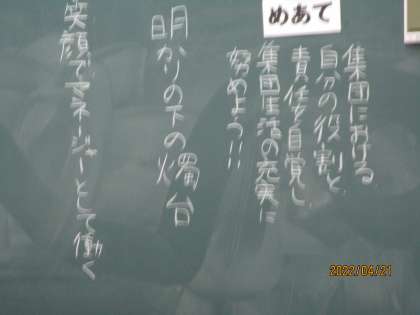 めあて
集団における
自分の役割と
責任を自覚し
集団生活の充実に
努めよう!!
明かりの下の燭台
笑顔でマネージャーとして働く
2022/04/21